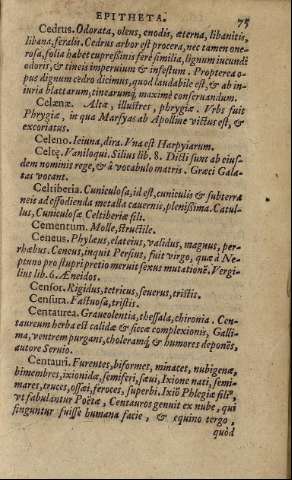 EPITHETA. 75
Cedrus. Odorata, olens, enodis, æterna, libanitis,
libana, feralis. Cedrus arbor est procera, nec tamen one-
rosa, folia habet cupressinis fere similia, lignum iucundi
odoris, & tineis imperuium & infestum. Propterea o-
pus dignum cedro dicimus, quod laudabile est, & ab in-
iuria blattarum, tinearumq́; maximè conseruandum.
Celænæ. Altæ, illustres, phrygiæ. Vrbs fuit
Phrygiæ, in qua Marsyas ab Apolline victus est, &
excoriatus.
Celeno. Ieiuna, dira. Vna est Harpyiarum.
Celtę. Vaniloqui. Silius lib. 8. Dicti sunt ab eius-
dem nominis rege, & à vocabulo matris. Græci Gala-
tas vocant.
Celtiberia. Cuniculosa, id est, cuniculis & subterra
neis ad effodienda metalla cauernis, plenissima. Catul-
lus, Cuniculosæ Celtiberiæ fili.
Cementum. Molle, structile.
Ceneus. Phyleus, elateius, validus, magnus, per-
rhæbus. Ceneus, inquit Persius, fuit virgo, quæ à Ne-
ptuno pro stupri pretio meruit sexus mutationē. Vergi-
lius lib. 6. Æneidos.
Censor. Rigidus, tetricus, seuerus, tristis.
Censura. Fastuosa, tristis.
Centaurea. Graueolentia, thessala, chironia. Cen-
taureum herba est calidæ & siccæ complexionis, Galli-
ma, ventrem purgans, choleramq́; & humores deponēs,
autore Seruio.
Centauri. Furentes, biformes, minaces, nubigenæ,
bimembres, ixionidæ, semiferi, sæui, Ixione nati, semi-
mares, truces, ossæi, feroces, superbi. Ixiō Phlegiæ filiꝰ,
vt fabulantur Poëtæ, Centauros genuit ex nube, qui
finguntur fuisse humana facie, & equino tergo,
quòd